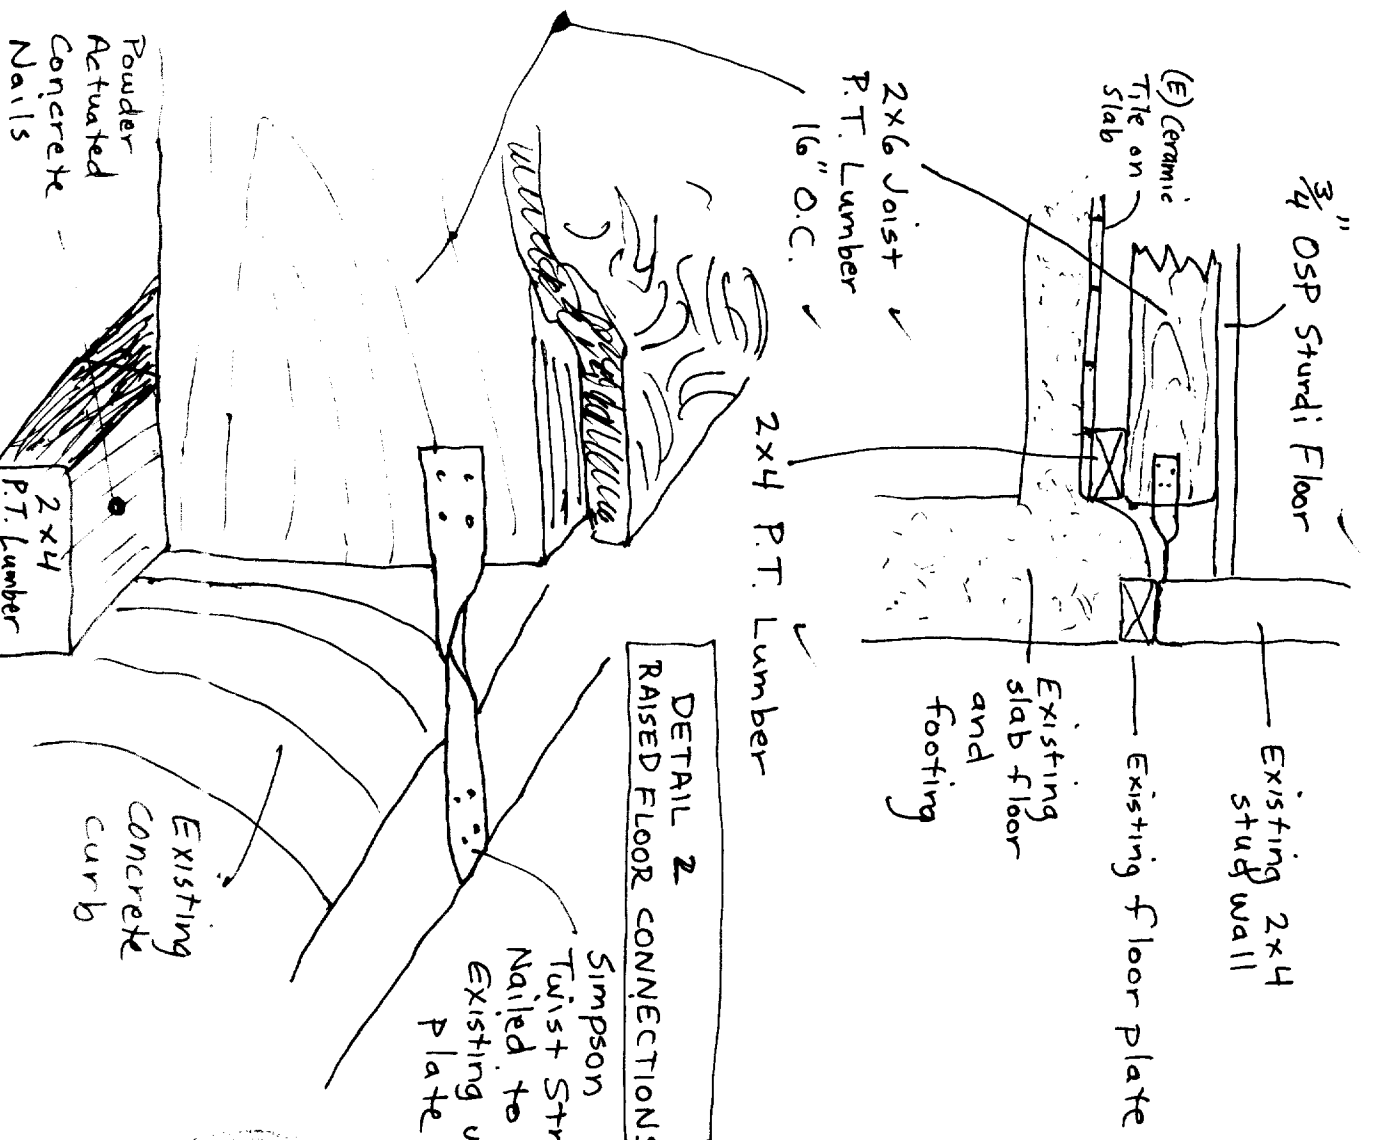 3/4" OSP Sturdi Floor
(E) Ceramic
Tile on
Slab
2x6 Joist
P.T. Lumber
16" O.C.
2x4 P.T. Lumber
Existing 2x4
stud wall
Existing floor plate
Existing
slab floor
and
footing
DETAIL 2
RAISED FLOOR CONNECTIONS
Simpson
Twist Str
Nailed to
Existing
plate
Powder
Actuated
Concrete
Nails
2x4
P.T. Lumber
Existing
Concrete
curb